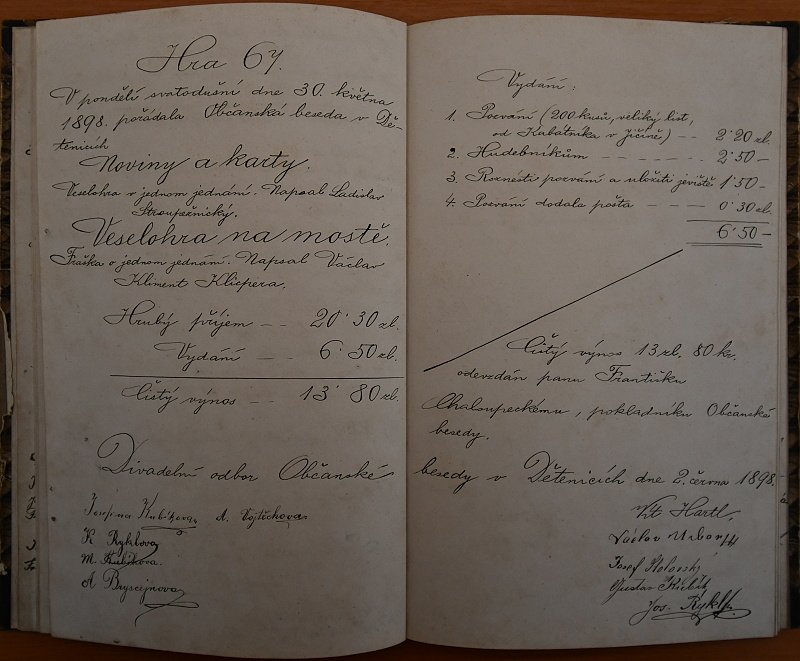 Hra 67.
V pondělí svatodušní dne 30. května
1898. pořádala Občanská beseda v Dě-
tenicích
Noviny a karty.
Veselohra v jednom jednání. Napsal Ladislav
Stroupežnický.
Veselohra na mostě.
Fraška o jednom jednání. Napsal Václav
Kliment Klicpera.
Hrubý příjem — — 20˙30 zl.
Vydání — — 6˙50 zl.
Čistý výnos — — 13˙80 zl.
Divadelní odbor Občanské
Josefina Kubíkova, A. Vojtěchova
K Ryklova
M. Kubíkova.
A Bryscejnova
Vydání:
1. Pozvání (200 kusů, veliký list,
od Kabátníka v Jičíně) — — 2˙20 zl.
2. Hudebníkům — — — — — 2˙50 —
3. Roznesti pozvání a uložiti jeviště 1˙50 —
4. Pozvání dodala pošta — — — 0˙30 zl.
6˙50 —
Čistý výnos 13 zl. 80 kr.
odevzdán panu Františku
Chaloupeckému, pokladníku Občanské
besedy.
besedy v Dětenicích dne 2. června 1898.
Vít Hartl.
Václav Urban
Josef
Gustav Kubík
Jos. Rykl